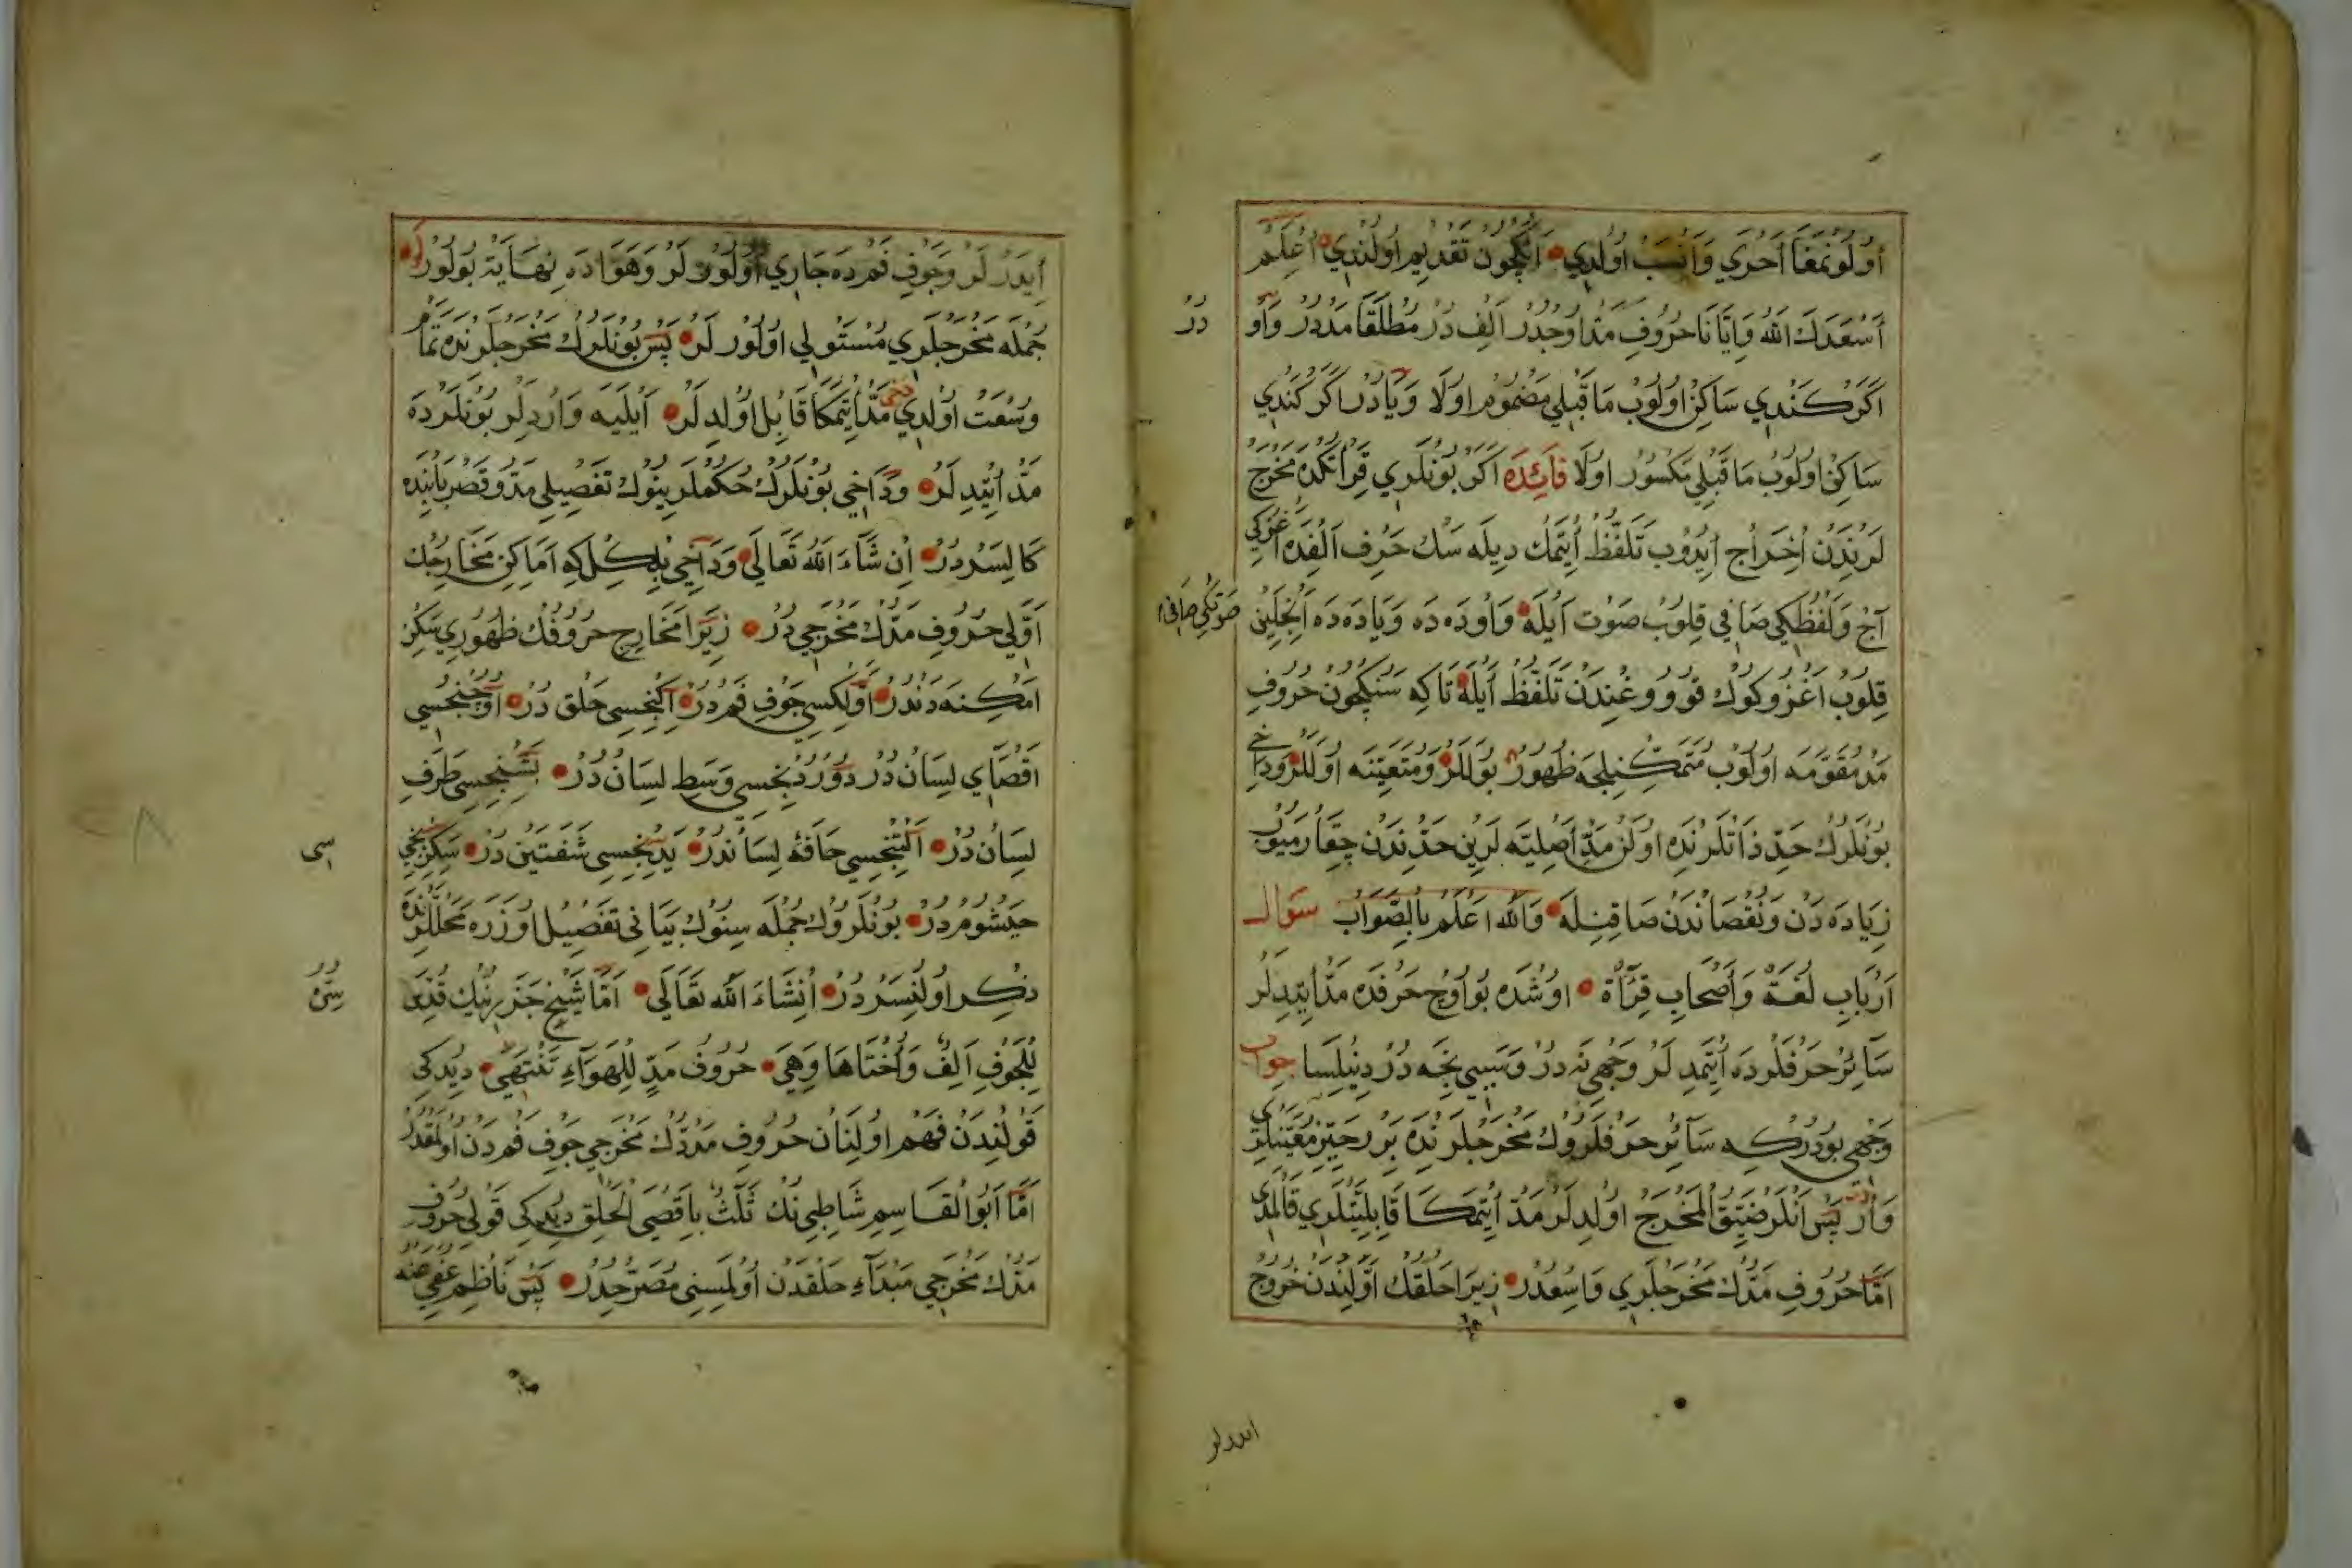 اُولُونمَغَا اَحْرَي وَاَنْسَبْ اُولدِي اَنكِچُونْ تَقْدِيمِ اُولُنْدِي اِعْلَمْ
اَسْعَدَكَ اللّٰهُ وَاِيَّانَا حُرُوفِ مَدّ اُوچْدُرْ اَلِفْ دُرْ مُطْلَقَا مَدْدِرْ وَاوْ
دُرْ
اَكَرْ كَنْدِي سَاكِنْ اُولُوبْ مَا قَبْلِي مَضْمُومْ اولَا وَيَادُرْ اكَرْ كَنْدِي
سَاكِنْ اولُوبْ مَا قَبْلِي مَكْسُورْ اولَا فَائِدَه اَكَرْ بُونْلَرِي قِرَاتكْدَه مَخْرَجْ
لَرِنْدَنْ اِخْرَاجْ اَيدُوبْ تَلَفُّظْ اَيتْمَكْ دِيلَه سَكْ حَرفِ اَلِفْدَه اَغْزكِي
آچْ وَلَفْظكِي صَافِي قِلُوبْ صَوْت اَيلَه وَاودَه دَه وَيَادَه دَه اَنجِلَيِنْ
صَوتكِي صَافِي
قِلُوبْ اَغْزُوكُوكْ قووُوغِنْدَنْ تَلَفُّظْ اَيلَه تَاكِه سَنكِچُونْ حُرُوفِ
مَدّ مُقَوَّمَه اولُوبْ مُتَمَكِّنِيلجَه ظُهُورْ بُولَلَرْ وَمُتَعَيِّنَه اولَلَرْ وَدَاخِي
بُونْلَرُكْ حَدِّ ذَاتْلَرِنْدَه اولَنْ مَدِّ اَصْلِيَّه لَرِينْ حَدِّنْدَنْ چِقَارْمَيُوبْ
زِيَادَه دَنْ وَنُقْصَانْدَنْ صَاقِنِلَه وَاللّٰهُ اَعْلَمُ بِالصَّوَابْ سُؤَالْ
اَرْبَابِ لُغَةْ وَاَصْحَابِ قِرَآءَةْ اوشْدَه بُو اُوچْ حَرفدَه مَدّ اَيتدِيلَرْ
سَآئِرْ حَرفْلَردَه اَيتمَدِيلَرْ وَجْهِي نَه دُرْ وَسَبَبِي نَجَه دُرْ دِينِلسَا جواب
وَجْهِي بُودُرْ كِه سَآئِرْ حَرفْلَرُوكْ مَخْرَجْلَرِنْدَه بِرَرْ حَيِّزِ مُعَيَّنلَرِي
وَارْ پَسْ اَنْلَرْ ضَيِّقُ الْمَخْرَجْ اُولدِيلَرْ مَدّ اَيتْمَكَا قَابِلِيَّتْلَرِي قَالْمَدِي
اَمَّا حُرُوفِ مَدّكْ مَخْرَجْلَرِي وَاسِعْدُرْ زِيرَا حَلْقكْ اَوَّلِنْدَنْ خُرُوجْ
ايدرلر
اَيدَرْلَرْ وَجَوْفِ فَمدَه جَارِي اُولُورْلَرْ وَهَوَادَه نِهَايَتْ بُولُورْلَرْ
جُمْلَه مَخْرَجْلَرِي مُسْتَوْلِي اولُورْلَرْ پَسْ بُونْلَرُكْ مَخْرَجْلَرِنْدَه تَمَامْ
وُسْعَتْ اُولدِي دخي مَدّ اَيتمَكَا قَابِلْ اُولدِيلَرْ اَيلَيسَه وَارْدِيلَرْ بُونْلَرْدَه
مَدّ اَيتدِيلَرْ وَدَاخِي بُونْلَرُكْ حُكْمْلَرِينُوكْ تَفْصِيلِي مَدّ وَقَصْرْ بَابِنْدَه
كَالِيسَرْدُرْ اِنْ شَآءَ اللّٰهُ تَعَالَى وَدَاخِي بِلْكِلْ كِه اَمَاكِنِ مَخَارِجُكْ
اَوَّلِي حُرُوفِ مَدّكْ مَخْرَجِي دُرْ زِيرَا مَخَارِجِ حُرُوفكْ ظُهُورِي سَكِزْ
اَمْكِنَه دَنْدُرْ اَوَّلكِسِي جَوْفِ فَمدُرْ اِكِنْجِسِي حَلْق دُرْ اُوچُنْجِسِي
اَقْصَايِ لِسَانْ دُرْ دُورْدُنْجِسِي وَسَطِ لِسَانْ دُرْ بَشِنْجِسِي طَرَفِ
لِسَانْ دُرْ اَلْتِنْجِسِي حَافَهْ لِسَانْدُرْ يَدِنْجِسِي شَفَتَيْن دُرْ سَكِزِنْجِي
سى
خَيْشُومْ دُرْ بُونْلَرُوكْ جُمْلَه سِينُوكْ بَيَانِي تَفْصِيلْ اوزَرَه مَحَلْلَرِنْدَه
ذِكِرْ اولُنِيسَرْدُرْ اِنْشَاءَ اللّٰهُ تَعَالَى اَمَّا شَيْخ جَزَرِينِكْ قُدِّسَ
سِرُّهُ
لِلْجَوْفِ اَلِفْ وَاُخْتَاهَا وَهِيَ حُرُوفُ مَدٍّ لِلْهَوَآءِ تَنْتَهِي دِيدكِي
قَولِنْدَنْ فَهْم اولِنَانْ حُرُوفِ مَدّكْ مَخْرَجِي جَوْفِ فَمدَنْ اولمَقدُرْ
اَمَّا اَبُو الْقَاسِمِ شَاطِبِي نكْ ثَلَثْ بِاَقْصَى الْحَلْقِ دِيدكِي قَوْلِي حُرُوفِ
مَدّكْ مَخْرَجِي مَبْدَآءِ حَلْقدَنْ اُولمَسِنِي مُصَرِّحدُرْ پَسْ نَاظِم عُفِيَ عَنْه